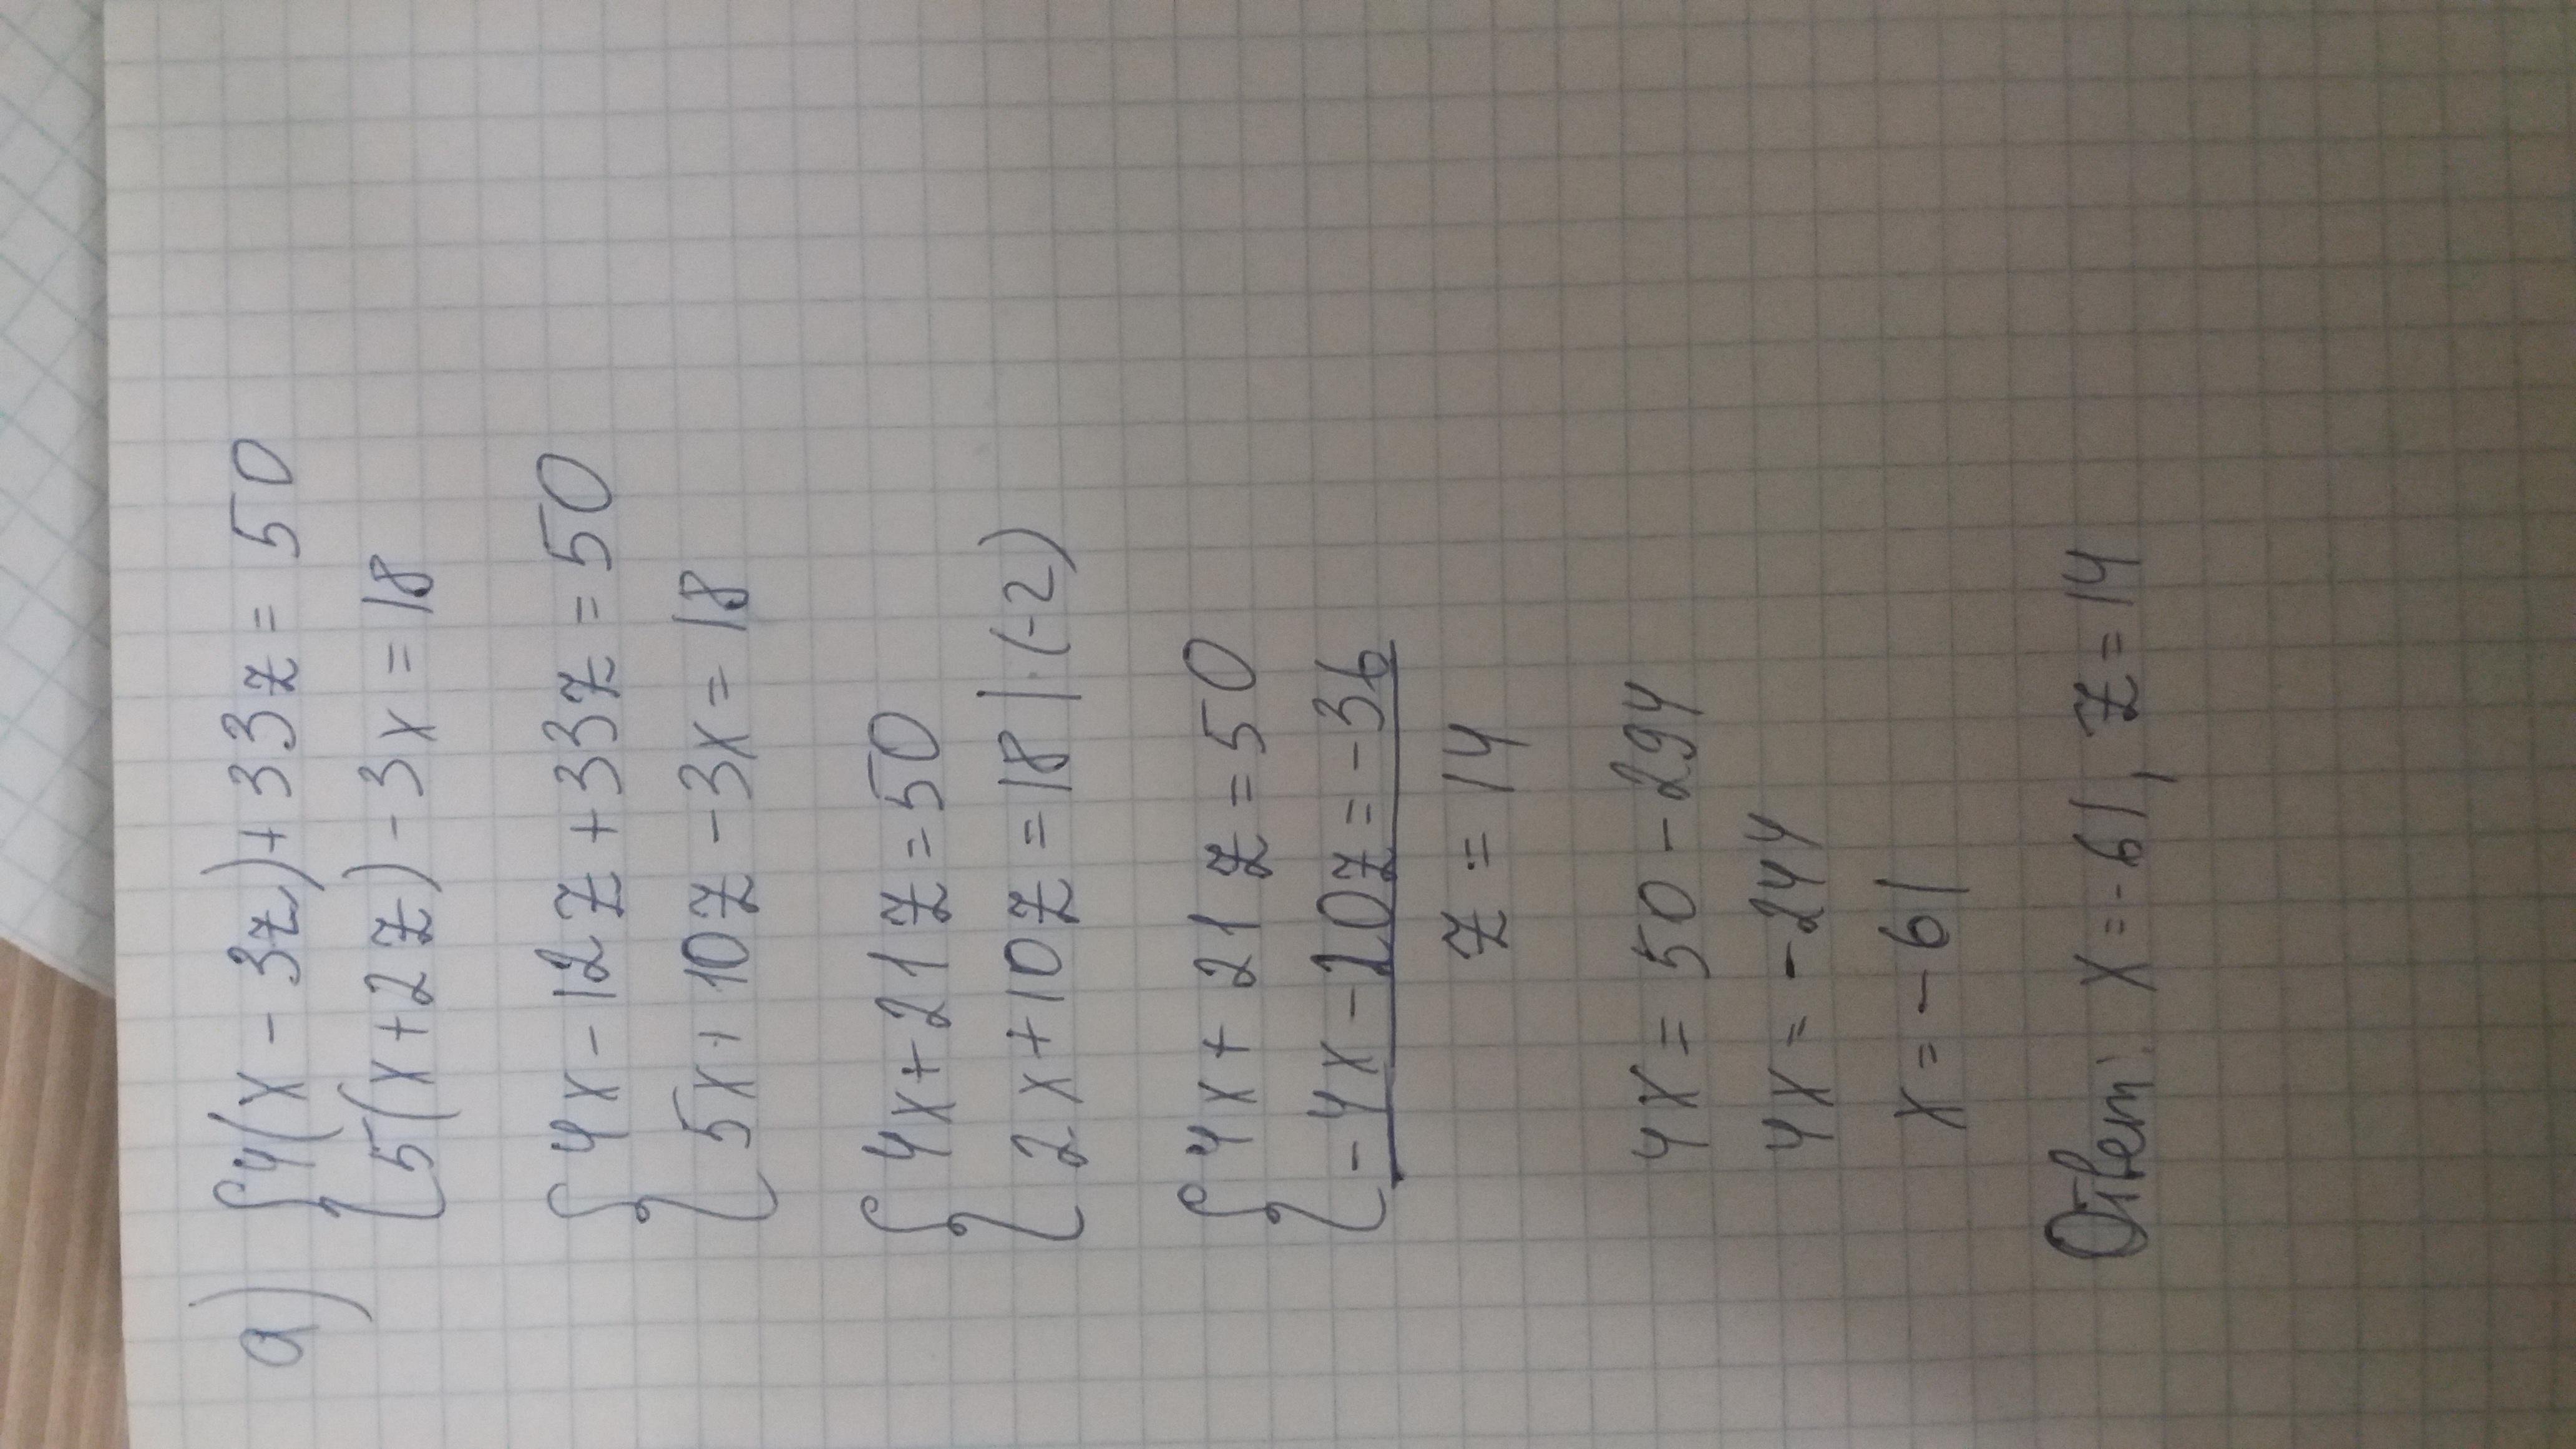 а) {4(x - 3z)+33z = 50
{5(x+2z)-3x = 18
{4x-12z+33z=50
{5x+10z-3x=18
{4x+21z=50
{2x+10z=18|·(-2)
{4x+21z=50
{-4x-20z=-36
z=14
4x=50-294
4x=-244
x=-61
Ответ: x=-61, z=14